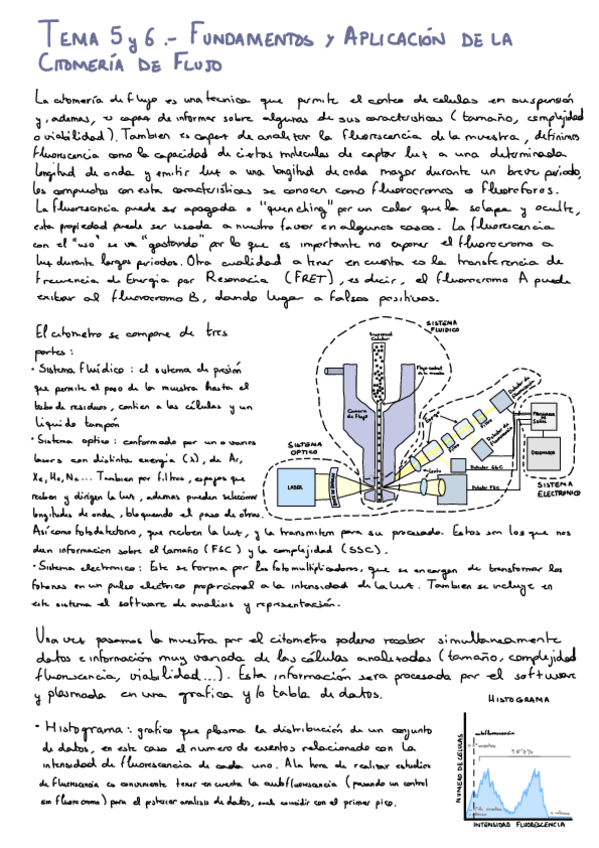 TEMA 5 y 6.- FUNDAMENTOS Y APLICACIÓN DE LA
CITOMERÍA DE FLUJO
La citomería de flujo es una tecnica que permite el conteo de celulas en suspensión
y, ademas, es capaz de informar sobre algunas de sus caracteristicas (tamaño, complejidad
o viabilidad). Tambien es capaz de analizar la fluorescencia de la muestra, definimos
fluorescencia como la capacidad de ciertas moleculas de captar luz a una determinada
longitud de onda y emitir luz a una longitud de onda mayor durante un breve periodo,
los compuestos con esta caracteristicas se conocen como fluorocromos o fluoroforos.
La fluorescencia puede ser apagada o "quenching" por un color que la solape y oculte,
esta propiedad puede ser usada a nuestro favor en algunos casos. La fluorescencia
con el "uso" se va "gastando" por lo que es importante no exponer el fluorocromo a
luz durante largos periodos. Otra cualidad a tener en cuenta es la transferencia de
Frecuencia de Energia por Resonacia (FRET), es decir, el fluorocromo A puede
exitar al fluorocromo B, dando lugar a falsos positivos.
El citometro se compone de tres
partes:
· Sistema fluidico: el sistema de presión
que permite el paso de la muestra hasta el
tubo de residuos, contien a las células y un
liquido tampón
· Sistema optico: conformado por un o varios
lasers con distinta energia (λ), de Ar,
Xe, He, Ne... Tambien por filtros, espejos que
reciben y dirigen la luz, ademas pueden seleccionar
longitudes de onda, bloqueando el paso de otras.
Asi como fotodetectores, que reciben la luz, y la transmiten para su procesado. Estos son los que nos
dan informacion sobre el tamaño (FSC) y la complejidad (SSC).
· Sistema electronico: Este se forma por los fotomultiplicadores, que se encargan de transformar los
fotones en un pulso electrico proporcional a la intensidad de la luz. Tambien se incluye en
este sistema el software de analisis y representación.
SISTEMA
FLUIDICO
Camara
de flujo
SISTEMA
OPTICO
LASER
Detector SSC
Detector FSC
ORDENADOR
SISTEMA
ELECTRONICO
Una vez pasamos la muestra por el citometro podemo recabar simultaneamente
datos e información muy variada de las células analizadas (tamaño, complejidad
fluorescencia, viabilidad...). Esta información sera procesada por el software
y plasmada en una grafica y/o tabla de datos.
· Histograma: grafico que plasma la distribución de un conjunto
de datos, en este caso el numero de eventos relacionado con la
intensidad de fluorescencia de cada uno. A la hora de realizar estudios
de fluorescencia es conveniente tener en cuenta la autofluorescencia (pasando un control
sin fluorocromo) para el posterior analisis de datos, suele coincidir con el primer pico.
HISTOGRAMA
autofluorescencia
NUMERO DE CÉLULAS
INTENSIDAD FLUORESCENCIA